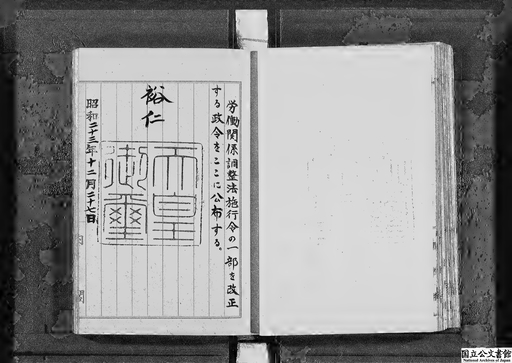 労働関係調整法施行令の一部を改正
する政令をここに公布する。
裕仁
天皇
御璽
昭和二十三年十二月二十七日
内閣
国立公文書館
National Archives of Japan